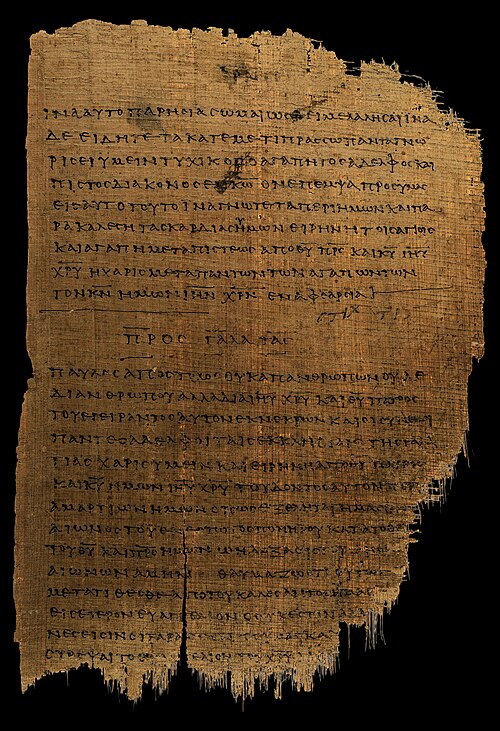 ΙΝΑΑΥΤΟΠΑΡΡΗϹΙΑϹΩΜΑΙΩϹΔΕΙΜΕΛΑΛΗϹΑΙΙΝΑ
ΔΕΕΙΔΗΤΕΤΑΚΑΤΕΜΕΤΙΠΡΑϹϹΩΠΑΝΤΑΓΝΩ
ΡΙϹΕΙΥΜΕΙΝΤΥΧΙΚΟϹΟΑΓΑΠΗΤΟϹΑΔΕΛΦΟϹΚΑΙ
ΠΙϹΤΟϹΔΙΑΚΟΝΟϹΕΝΚ̅Ω̅ΟΝΕΠΕΜΨΑΠΡΟϹΥΜΑϹ
ΕΙϹΑΥΤΟΤΟΥΤΟΙΝΑΓΝΩΤΕΤΑΠΕΡΙΗΜΩΝΚΑΙΠΑ
ΡΑΚΑΛΕϹΗΤΑϹΚΑΡΔΙΑϹΗΜΩΝΕΙΡΗΝΗΤΟΙϹΑΓΙΟΙϹ
ΚΑΙΑΓΑΠΗΜΕΤΑΠΙϹΤΕΩϹΑΠΟΘ̅Υ̅Π̅Ρ̅Ϲ̅ΚΑΙΚ̅Υ̅Ι̅Η̅Υ̅
Χ̅Ρ̅Υ̅ΗΧΑΡΙϹΜΕΤΑΠΑΝΤΩΝΤΩΝΑΓΑΠΩΝΤΩΝ
ΤΟΝΚ̅Ν̅ΗΜΩΝΙ̅Η̅Ν̅Χ̅Ρ̅Ν̅ΕΝΑΦΘΑΡϹΙΑ
ΠΡΟϹ ΓΑΛΑΤΑϹ
ΠΑΥΛΟϹΑΠΟϹΤΟΛΟϹΟΥΚΑΠΑΝΘΡΩΠΩΝΟΥΔΕ
ΔΙΑΝΘΡΩΠΟΥΑΛΛΑΔΙΑΙ̅Η̅Υ̅Χ̅Ρ̅Υ̅ΚΑΙΘ̅Υ̅ΠΑΤΡΟϹ
ΤΟΥΕΓΕΙΡΑΝΤΟϹΑΥΤΟΝΕΚΝΕΚΡΩΝΚΑΙΟΙϹΥΝΕΜΟΙ
ΠΑΝΤΕϹΑΔΕΛΦΟΙΤΑΙϹΕΚΚΛΗϹΙΑΙϹΤΗϹΓΑΛΑ
ΤΙΑϹΧΑΡΙϹΥΜΕΙΝΚΑΙΕΙΡΗΝΗΑΠΟΘ̅Υ̅
ΚΑΙΚ̅Υ̅ΗΜΩΝΙ̅Η̅Υ̅Χ̅Ρ̅Υ̅ΤΟΥΔΟΝΤΟϹΑΥΤΟΝ
ΑΜΑΡΤΙΩΝΗΜΩΝΟΠΩϹΕΞΕΛΗΤΑΙΗΜΑϹ
ΑΙΩΝΟϹΤΟΥΕΝΕϹΤΩΤΟϹΠΟΝΗΡΟΥΚΑΤΑΤΟ
ΤΟΥΘ̅Υ̅ΚΑΙΠ̅Ρ̅Ϲ̅ΗΜΩΝΩΗΔΟΞΑΕΙϹ
ΑΙΩΝΩΝΑΜΗΝΘΑΥΜΑΖΩΟΤΙΟΥΤΩϹ
ΜΕΤΑΤΙΘΕϹΘΕΑΠΟΤΟΥΚΑΛΕϹΑΝΤΟϹ
ΕΙϹΕΤΕΡΟΝΕΥΑΓΓΕΛΙΟΝΟΟΥΚΕϹΤΙΝ
ΝΕϹΕΙϹΙΝΟΙΤΑΡΑϹ